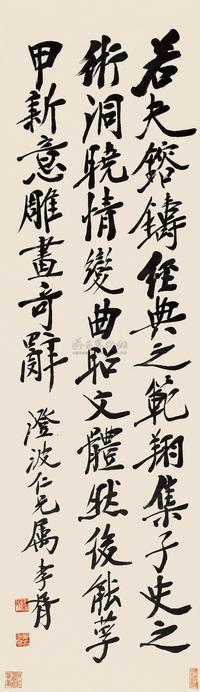 若夫鎔鑄經典之範翔集子史之
術洞曉情變曲昭文體然後能孚
甲新意雕畫奇辭
澄波仁兄属孝胥